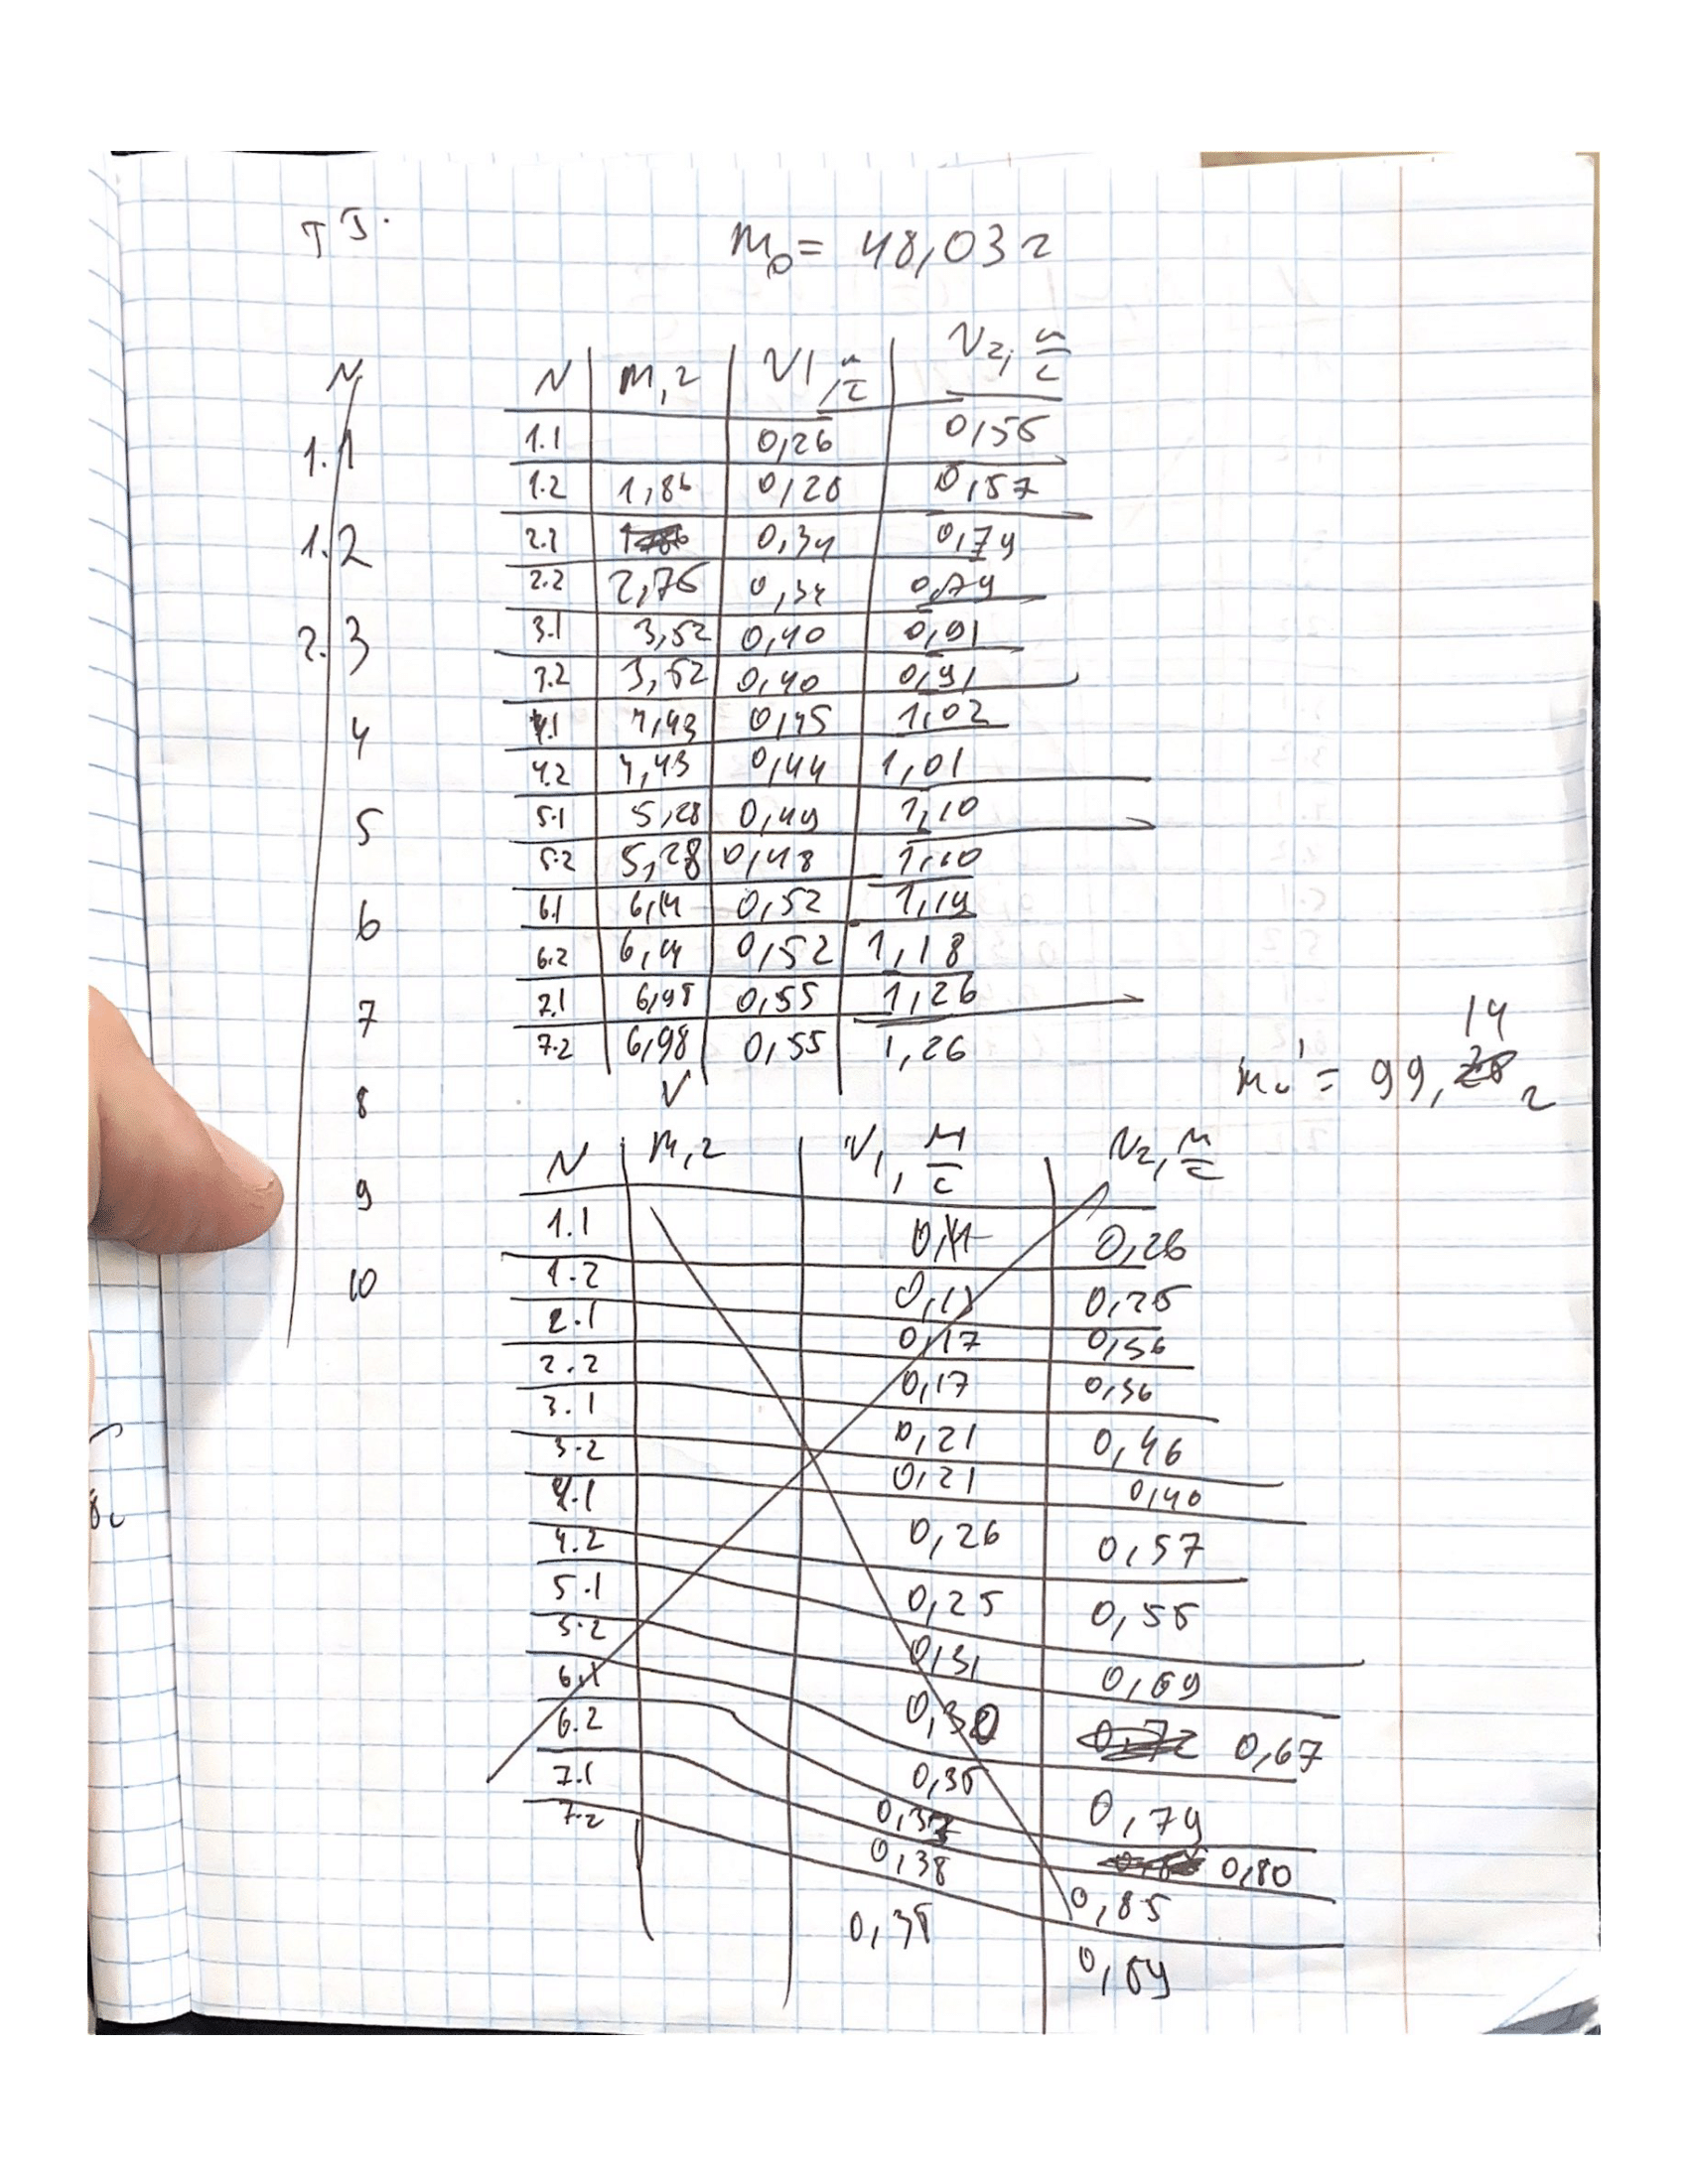 m₀ = 48,03 г
N
1.1
1.2
2.3
4
5
6
7
8
9
10
N m,г V1, м/с V2, м/с
1.1 0,26 0,56
1.2 1,86 0,26 0,57
2.1 0,34 0,79
2.2 2,76 0,34 0,79
3.1 3,52 0,40 0,91
3.2 3,52 0,40 0,91
4.1 4,43 0,45 1,02
4.2 4,43 0,44 1,01
5.1 5,28 0,49 1,10
5.2 5,28 0,48 1,10
6.1 6,14 0,52 1,19
6.2 6,14 0,52 1,18
7.1 6,98 0,55 1,26
7.2 6,98 0,55 1,26
V
14
= 99, г
N m,г V1, м/с V2, м/с
1.1 0,11 0,26
1.2 0,11 0,26
2.1 0,17 0,36
2.2 0,17 0,36
3.1 0,21 0,46
3.2 0,21 0,40
4.1 0,26 0,57
4.2 0,25 0,56
5.1 0,31 0,69
5.2 0,30 0,67
6.1 0,36 0,79
6.2 0,80
7.1 0,38 0,85
7.2